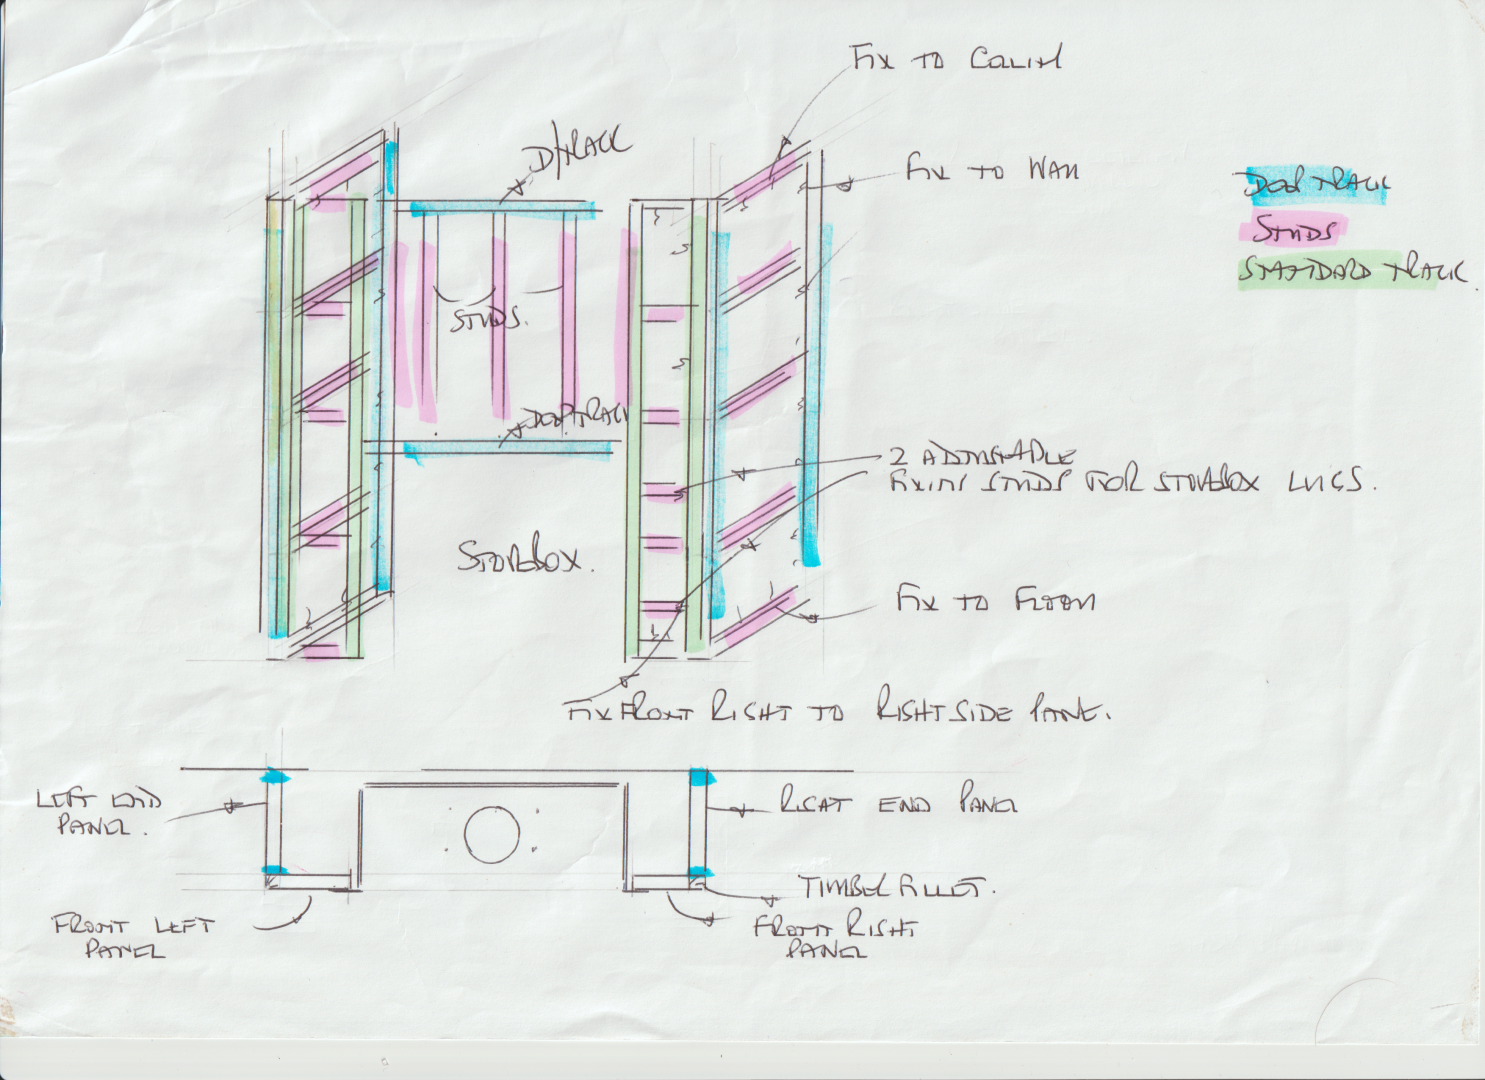 FIX TO
D/TRACK
FIX TO WALL
DEEP TRACK
STUDS
STANDARD TRACK
STUDS.
DEEP TRACK
2 ADJUSTABLE
FIXING STUDS FOR STOVEBOX LUGS.
STOVEBOX.
FIX TO FLOOR
FIX FRONT RIGHT TO RIGHT SIDE PANEL.
LEFT END
PANEL.
RIGHT END PANEL
TIMBER FILLET.
FRONT LEFT
PANEL
FRONT RIGHT
PANEL